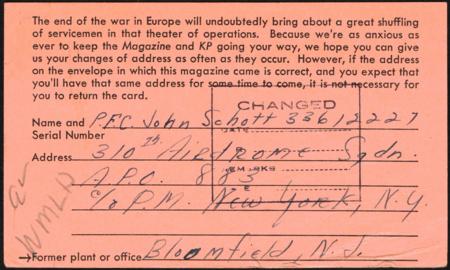 The end of the war in Europe will undoubtedly bring about a great shuffling
of servicemen in that theater of operations. Because we're as anxious as
ever to keep the Magazine and KP going your way, we hope you can give
us your changes of address as often as they occur. However, if the address
on the envelope in which this magazine came is correct, and you expect that
you'll have that same address for some time to come, it is not necessary for
you to return the card.
CHANGED
Name and P.F.C. John Schott 33612227
Serial Number
DATE
Address 310th Airdrome Sqdn.
REMARKS
A.P.O. 883
c/o P.M. New York, N.Y.
WMLD
→Former plant or office Bloomfield, N.J.